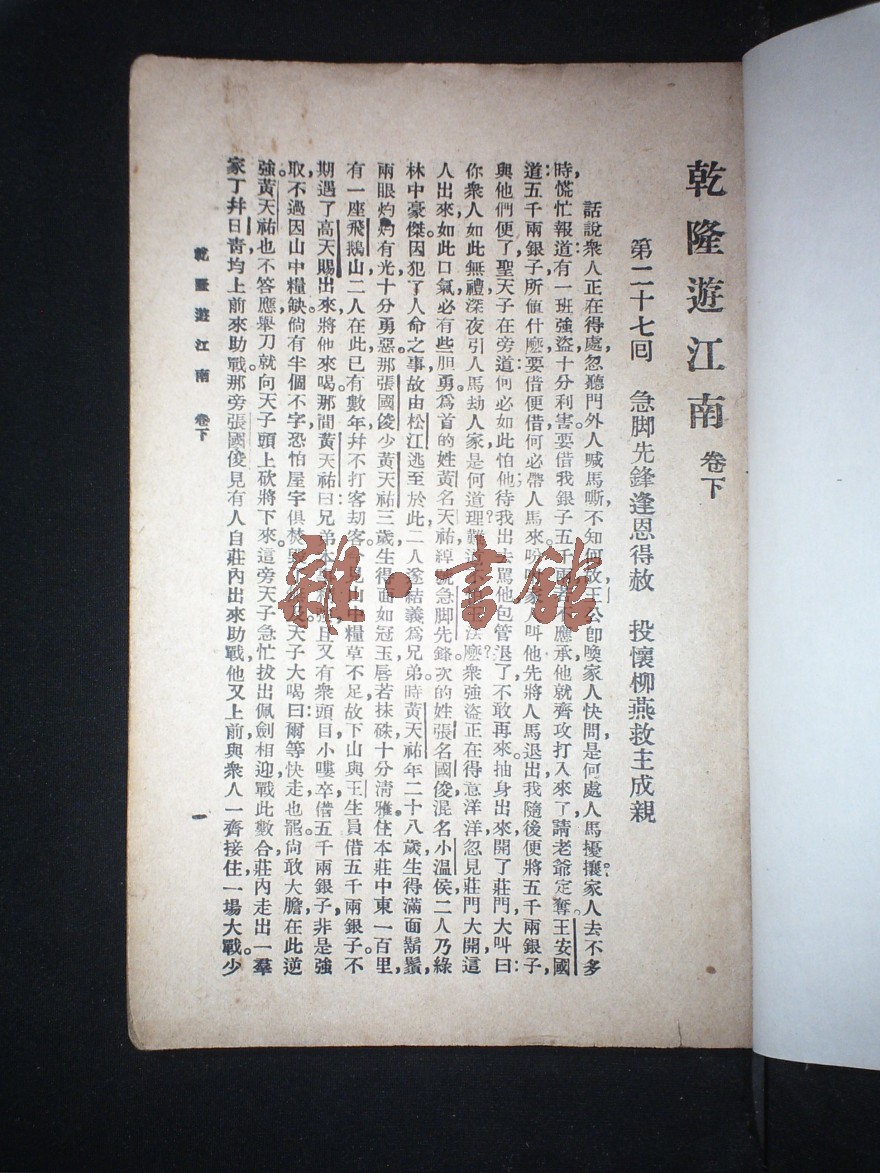 乾隆遊江南 卷下
第二十七回 急脚先鋒逢恩得赦 投懷柳燕救主成親
話說衆人正在得處,忽聽門外人喊馬嘶,不知何故,王公卽喚家人快問是何處人馬擾攘。家人去不多
時,慌忙報道:有一班強盜十分利害,要借我銀子五千兩,若不應承他就齊攻打入來了,請老爺定奪。王安國
道:五千兩銀子所値什麽,要借便借,何必帶人馬來。吩咐家人叫他先將人馬退出,我隨後便將五千兩銀子,
與他們便了。聖天子在旁道:何必如此怕他,待我出去罵他,包管退了,不敢再來。抽身出來,開了莊門,大叫曰:
你衆人如此無禮,深夜引人馬劫人家,是何道理?難道法麽?衆強盜正在得意洋洋,忽見莊門大開,這
人出來,如此口氣,必有些胆勇。爲首的姓黃名天祐,綽號急脚先鋒。次的姓張名國俊,混名小温侯,二人乃綠
林中豪傑。因犯了人命之事,故由松江逃至於此,二人遂結義爲兄弟。時黃天祐年二十八歲,生得滿面鬍鬚,
兩眼灼灼有光,十分勇惡。那張國俊少黃天祐三歲,生得面如冠玉,唇若抹硃,十分清雅。住本莊中東一百里,
有一座飛鵝山,二人在此已有數年,幷不打客劫客。見山中糧草不足,故下山與王生員借五千兩銀子。不
期遇了高天賜出來將他來喝。那間黃天祐曰:兄弟本且又有衆頭目小嘍卒借五千兩銀子,非是強
取,不過因山中糧缺,倘有半個不字,恐怕屋宇俱焚天子大喝曰:爾等快走也罷,尙敢大膽在此逆
強。黃天祐也不答應,舉刀就向天子頭上砍將下來。這旁天子急忙拔出佩劍相迎,戰此數合,莊內走出一羣
家丁幷日靑,均上前來助戰。那旁張國俊見有人自莊內出來助戰,他又上前,與衆人一齊接住,一場大戰。少
乾隆遊江南 卷下
一
雜·書館